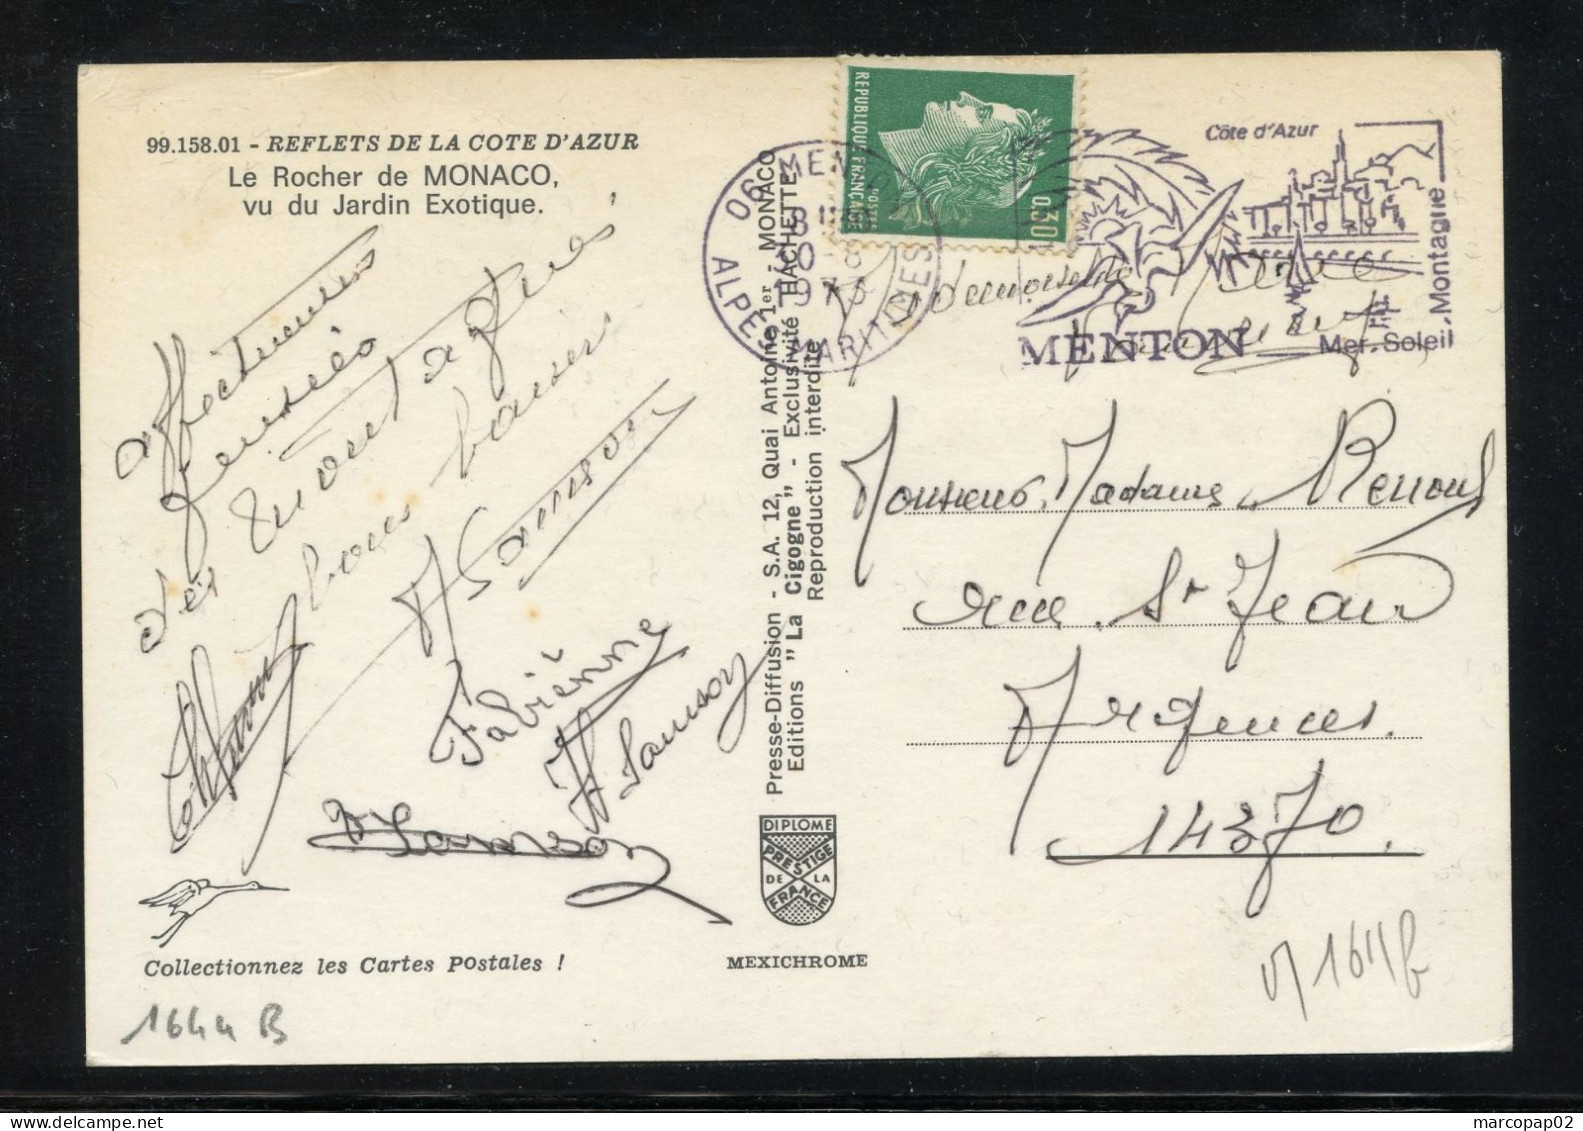 99.158.01 - REFLETS DE LA COTE D'AZUR
Le Rocher de MONACO,
vu du Jardin Exotique.
affectueuses
pensées
des
montagnes
bons baisers
Samson
Fabienne
Samson
Samson
Collectionnez les Cartes Postales !
1644 B
Presse-Diffusion - S.A. 12, Quai Antoine 1er - MONACO
Editions "La Cigogne" - Exclusivité HACHETTE
Reproduction interdite
DIPLOME
PRESTIGE
DE LA
FRANCE
MEXICHROME
REPUBLIQUE FRANÇAISE
POSTES
0,30
06 MENTON
30-8
ALPES MARITIMES
Côte d'Azur
MENTON
Mer, Soleil, Montagne
Mademoiselle
Monsieur, Madame Renouf
rue St Jean
Argences
14370
1611b
marcopap02